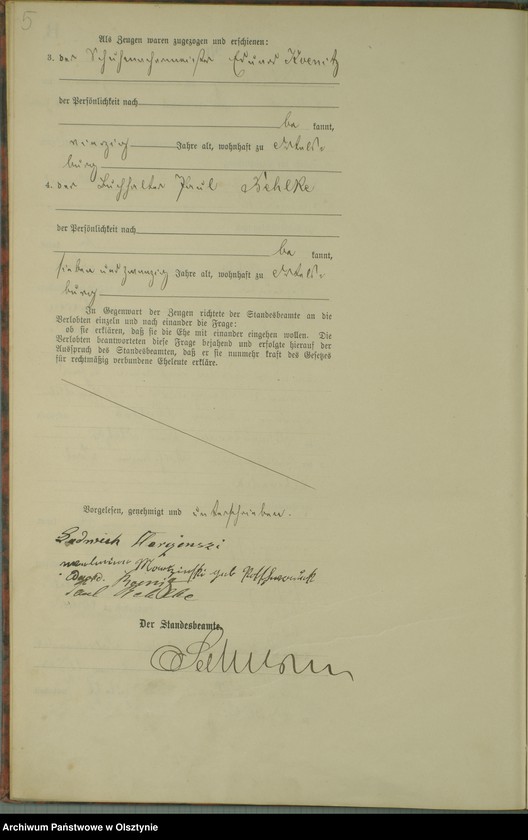 5
Als Zeugen waren zugezogen und erschienen:
3. der Schuhmachermeister Eduard Koenitz
der Persönlichkeit nach
be kannt,
vierzig Jahre alt, wohnhaft zu Ortels-
burg
4. der Buchhalter Paul Behlke
der Persönlichkeit nach
be kannt,
sieben und zwanzig Jahre alt, wohnhaft zu Ortels-
burg
In Gegenwart der Zeugen richtete der Standesbeamte an die
Verlobten einzeln und nach einander die Frage:
ob sie erklären, daß sie die Ehe mit einander eingehen wollen. Die
Verlobten beantworteten diese Frage bejahend und erfolgte hierauf der
Ausspruch des Standesbeamten, daß er sie nunmehr kraft des Gesetzes
für rechtmäßig verbundene Eheleute erkläre.
Vorgelesen, genehmigt und unterschrieben.
geb
Koenitz
Paul Behlke
Der Standesbeamte.
Archiwum Państwowe w Olsztynie